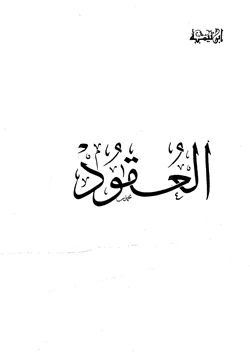 ابن تيمية
العُقُودْ